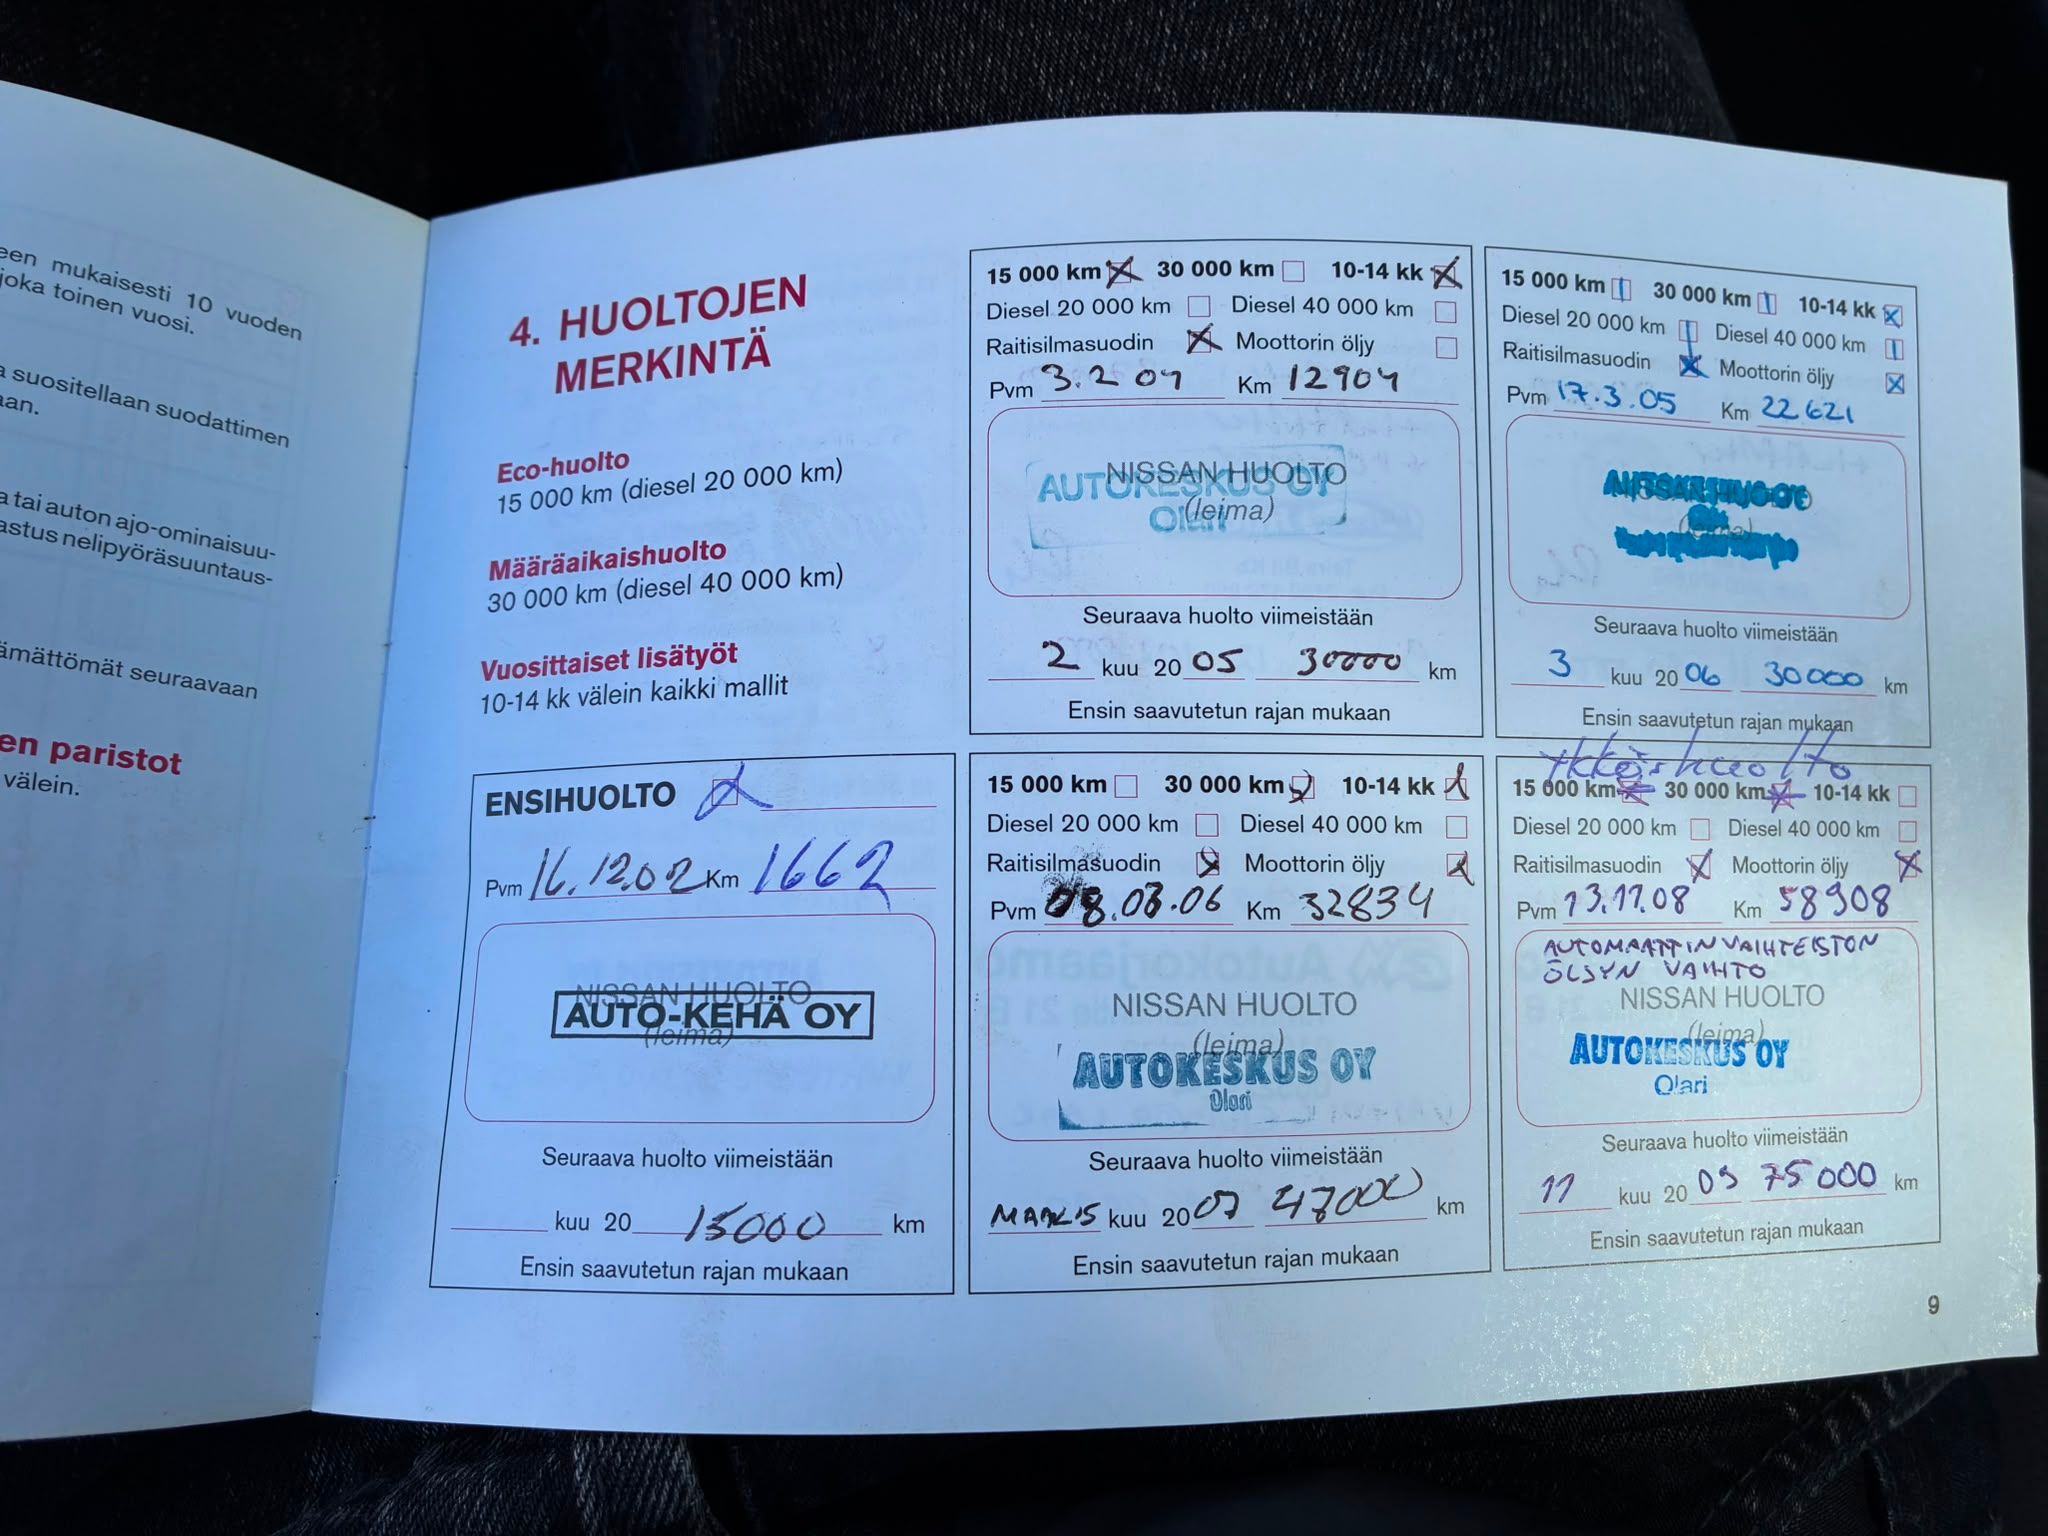 een mukaisesti 10 vuoden
joka toinen vuosi.
a suositellaan suodattimen
aan.
a tai auton ajo-ominaisuu-
astus nelipyöräsuuntaus-
ämättömät seuraavaan
en paristot
välein.
4. HUOLTOJEN
MERKINTÄ
Eco-huolto
15 000 km (diesel 20 000 km)
Määräaikaishuolto
30 000 km (diesel 40 000 km)
Vuosittaiset lisätyöt
10-14 kk välein kaikki mallit
15 000 km 30 000 km 10-14 kk
Diesel 20 000 km Diesel 40 000 km
Raitisilmasuodin Moottorin öljy
Pvm 3.2 04 Km 12904
NISSAN HUOLTO
AUTOKESKUS OY
(leima)
Olari
Seuraava huolto viimeistään
2 kuu 20 05 30000 km
Ensin saavutetun rajan mukaan
15 000 km 30 000 km 10-14 kk
Diesel 20 000 km Diesel 40 000 km
Raitisilmasuodin Moottorin öljy
Pvm 17.3.05 Km 22621
NISSAN HUOLTO
(leima)
Seuraava huolto viimeistään
3 kuu 20 06 30000 km
Ensin saavutetun rajan mukaan
ENSIHUOLTO
Pvm 16.12.02 Km 1662
NISSAN HUOLTO
AUTO-KEHÄ OY
(leima)
Seuraava huolto viimeistään
kuu 20 15000 km
Ensin saavutetun rajan mukaan
15 000 km 30 000 km 10-14 kk
Diesel 20 000 km Diesel 40 000 km
Raitisilmasuodin Moottorin öljy
Pvm 08.03.06 Km 32834
NISSAN HUOLTO
(leima)
AUTOKESKUS OY
Olari
Seuraava huolto viimeistään
MAALIS kuu 20 07 47000 km
Ensin saavutetun rajan mukaan
Ykköshuolto
15 000 km 30 000 km 10-14 kk
Diesel 20 000 km Diesel 40 000 km
Raitisilmasuodin Moottorin öljy
Pvm 13.11.08 Km 58908
AUTOMAATTINVAIHTEISTON
ÖLJYN VAIHTO
NISSAN HUOLTO
(leima)
AUTOKESKUS OY
Olari
Seuraava huolto viimeistään
11 kuu 20 09 75000 km
Ensin saavutetun rajan mukaan
9